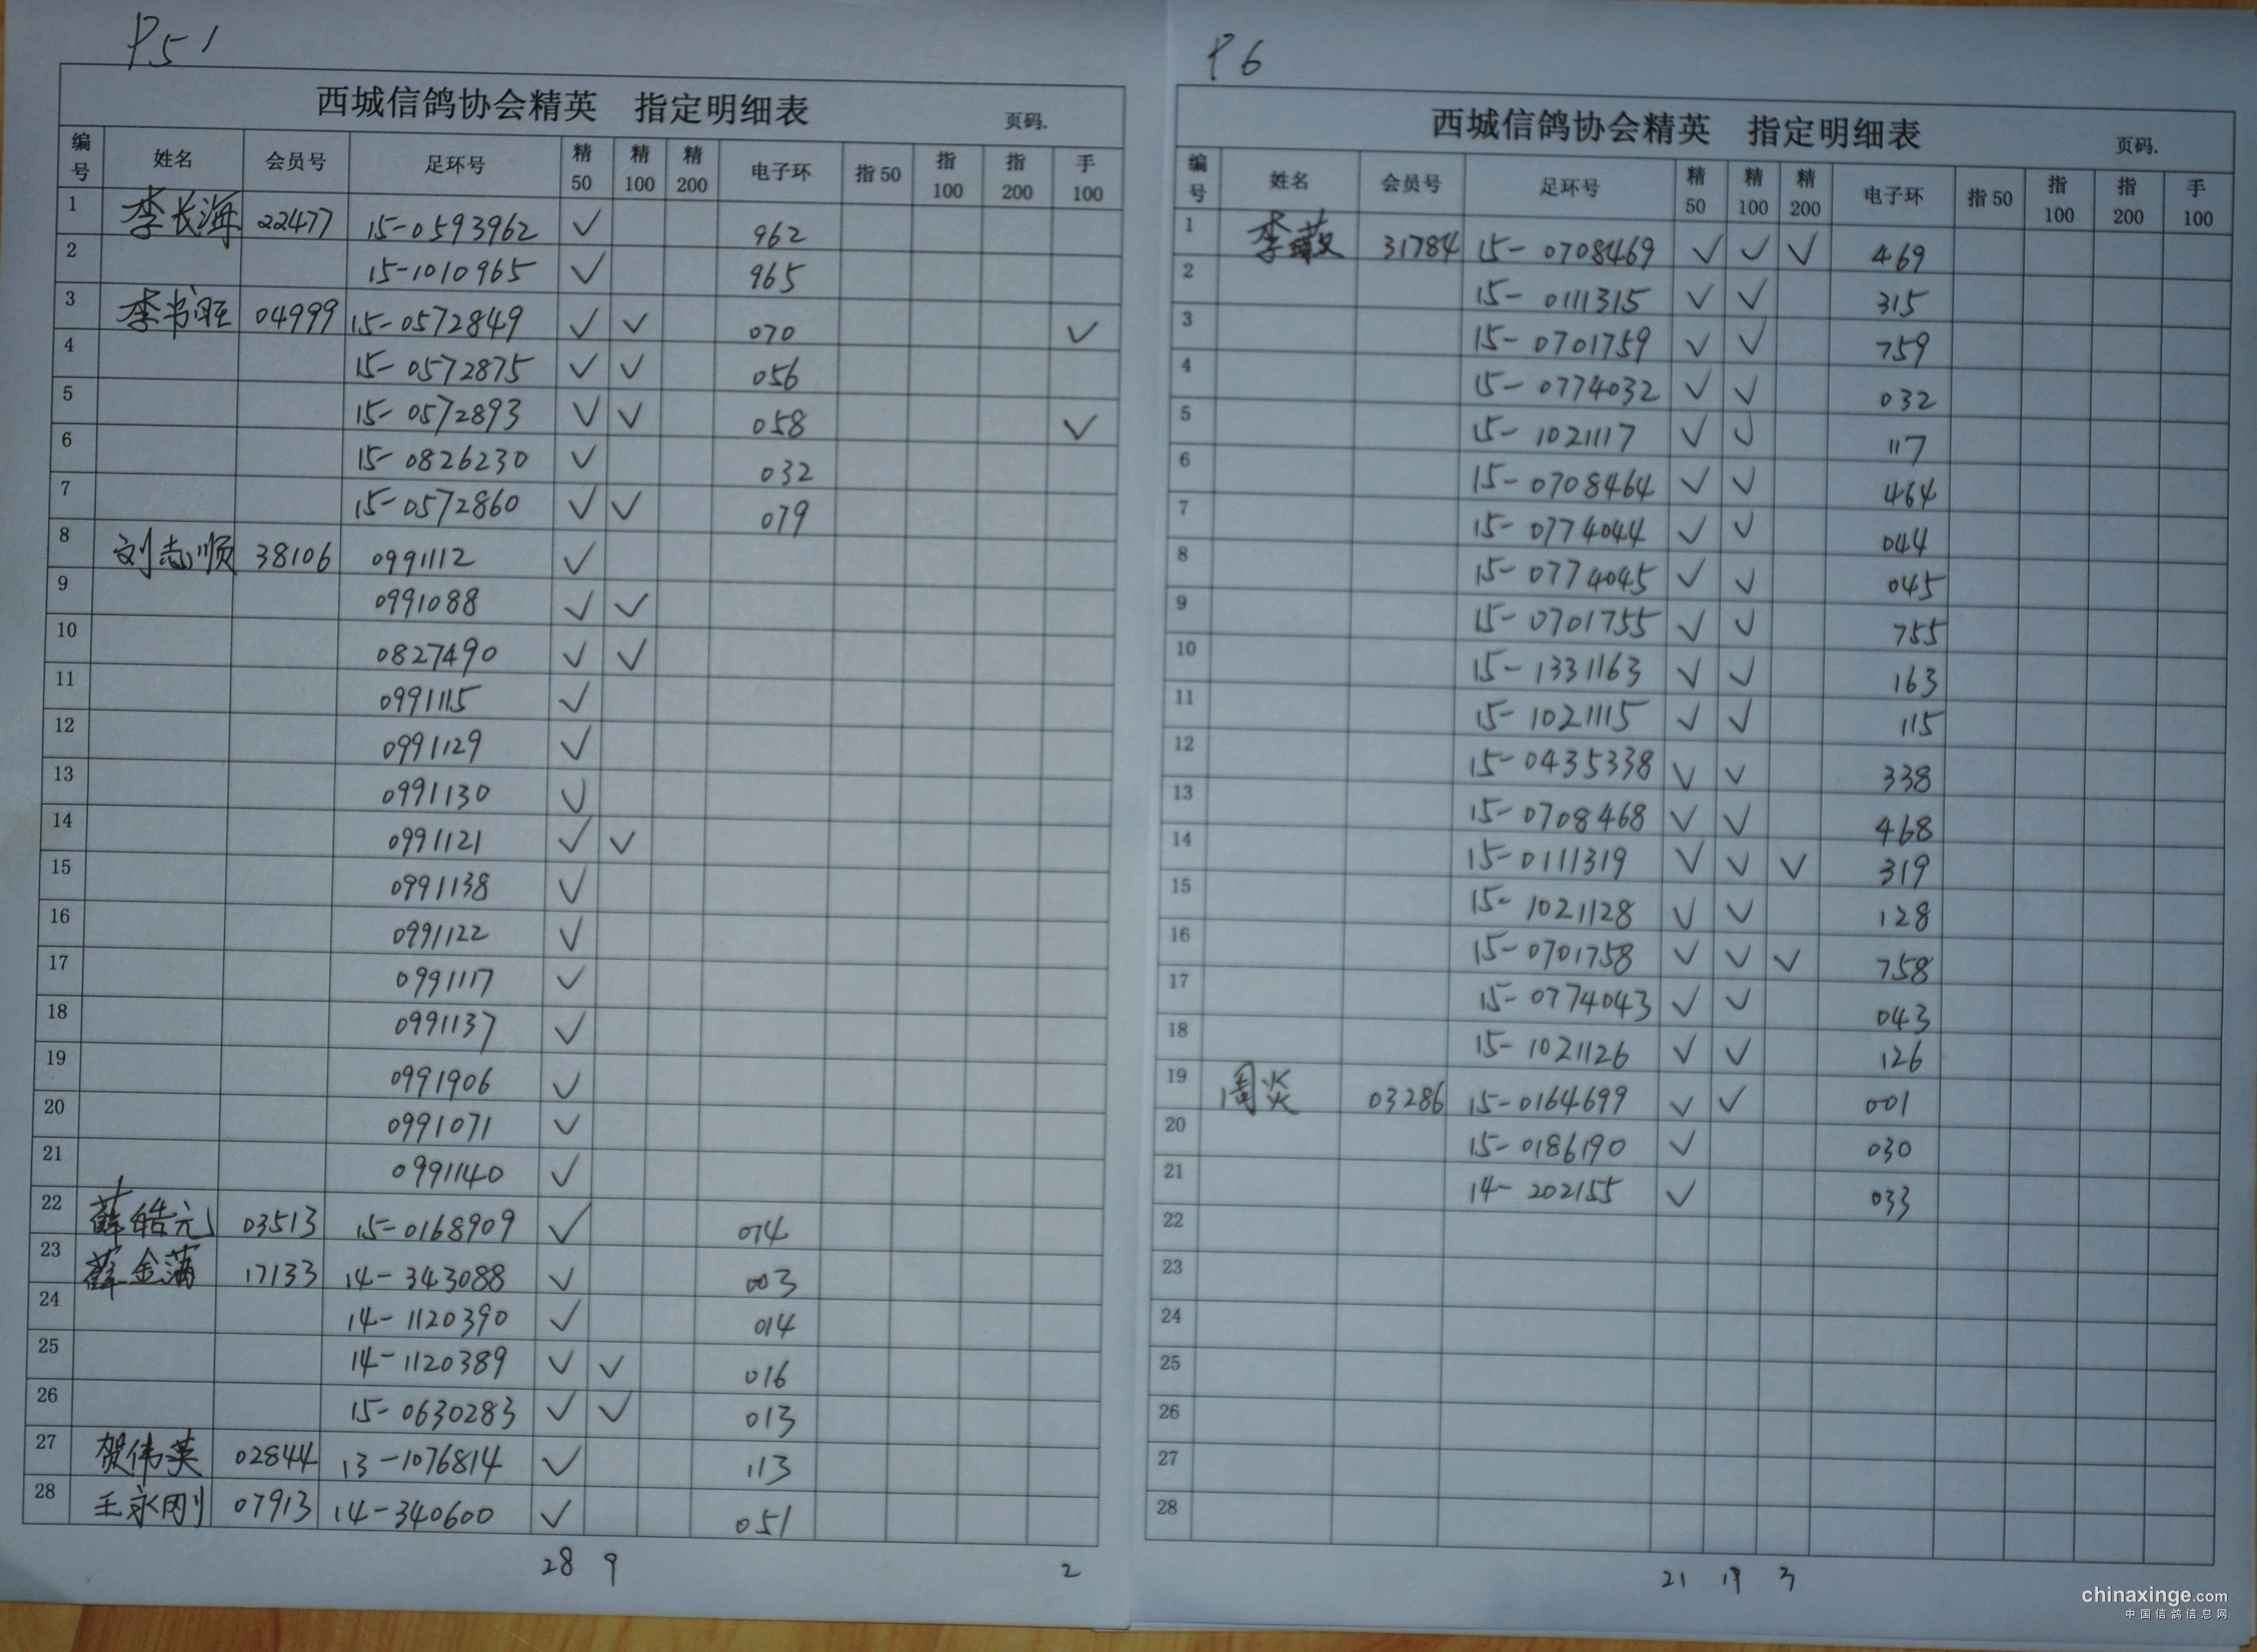 P51
西城信鸽协会精英 指定明细表 页码.
编号 姓名 会员号 足环号 精50 精100 精200 电子环 指50 指100 指200 手100
1 李长海 22477 15-0593962 ✓ 962
2 15-1010965 ✓ 965
3 李书旺 04999 15-0572849 ✓ ✓ 070 ✓
4 15-0572875 ✓ ✓ 056
5 15-0572893 ✓ ✓ 058 ✓
6 15-0826230 ✓ 032
7 15-0572860 ✓ ✓ 079
8 刘志顺 38106 0991112 ✓
9 0991088 ✓ ✓
10 0827490 ✓ ✓
11 0991115 ✓
12 0991129 ✓
13 0991130 ✓
14 0991121 ✓ ✓
15 0991138 ✓
16 0991122 ✓
17 0991117 ✓
18 0991137 ✓
19 0991906 ✓
20 0991071 ✓
21 0991140 ✓
22 薛皓元 03513 15-0168909 ✓ 074
23 薛金满 17133 14-343088 ✓ 003
24 14-1120390 ✓ 014
25 14-1120389 ✓ ✓ 016
26 15-0630283 ✓ ✓ 013
27 贺伟英 02844 13-1076814 ✓ 113
28 王永刚 07913 14-340600 ✓ 051
28 9 2
P6
西城信鸽协会精英 指定明细表 页码.
编号 姓名 会员号 足环号 精50 精100 精200 电子环 指50 指100 指200 手100
1 李 31784 15-0708469 ✓ ✓ ✓ 469
2 15-0111315 ✓ ✓ 315
3 15-0701759 ✓ ✓ 759
4 15-0774032 ✓ ✓ 032
5 15-1021117 ✓ ✓ 117
6 15-0708464 ✓ ✓ 464
7 15-0774044 ✓ ✓ 044
8 15-0774045 ✓ ✓ 045
9 15-0701755 ✓ ✓ 755
10 15-1331163 ✓ ✓ 163
11 15-1021115 ✓ ✓ 115
12 15-0435338 ✓ ✓ 338
13 15-0708468 ✓ ✓ 468
14 15-0111319 ✓ ✓ ✓ 319
15 15-1021128 ✓ ✓ 128
16 15-0701758 ✓ ✓ ✓ 758
17 15-0774043 ✓ ✓ 043
18 15-1021126 ✓ ✓ 126
19 周炎 03286 15-0164699 ✓ ✓ 001
20 15-0186190 ✓ 030
21 14-202155 ✓ 033
22
23
24
25
26
27
28
21 19 3
chinaxinge.com
中国信鸽信息网